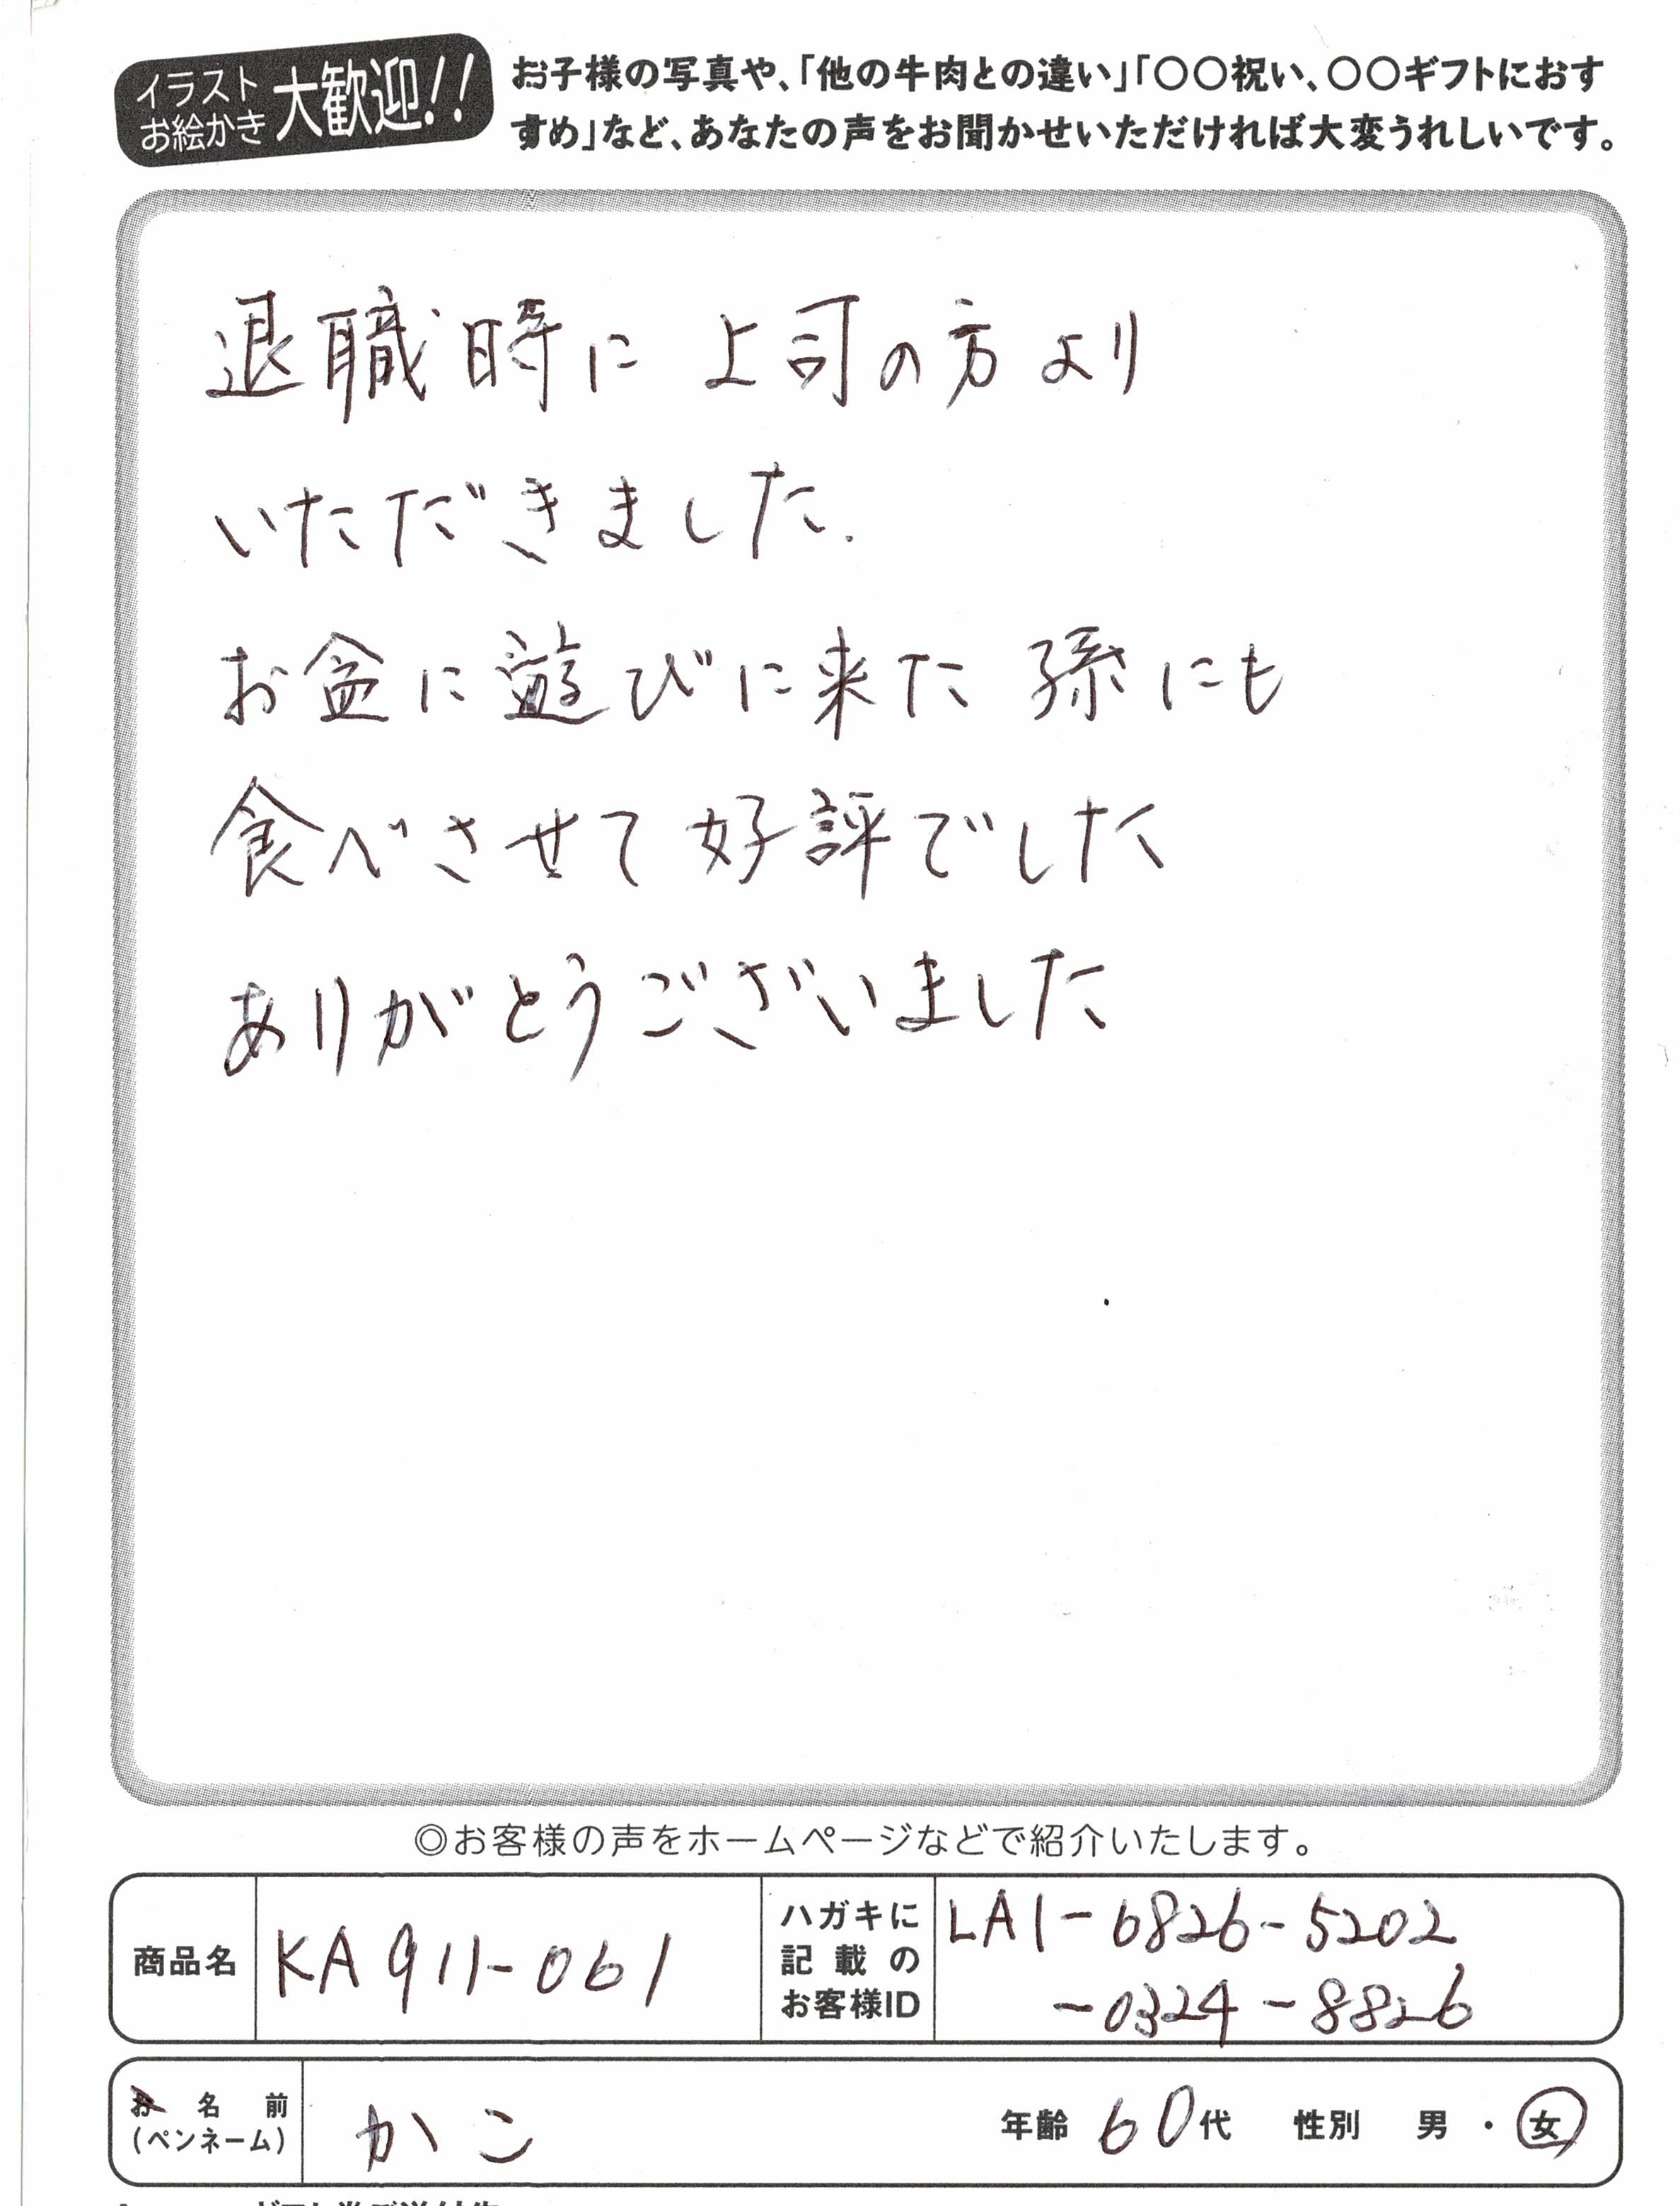 イラスト
お絵かき
大歓迎!!
お子様の写真や、「他の牛肉との違い」「〇〇祝い、〇〇ギフトにおす
すめ」など、あなたの声をお聞かせいただければ大変うれしいです。
退職時に 上司の方より
いただきました.
お盆に遊びに来た 孫にも
食べさせて 好評でした
ありがとうございました
◎お客様の声をホームページなどで紹介いたします。
商品名
KA911-061
ハガキに
記載の
お客様ID
LA1-6826-5202
-0324-8826
お名前
(ペンネーム)
かこ
年齢 60代 性別 男・女